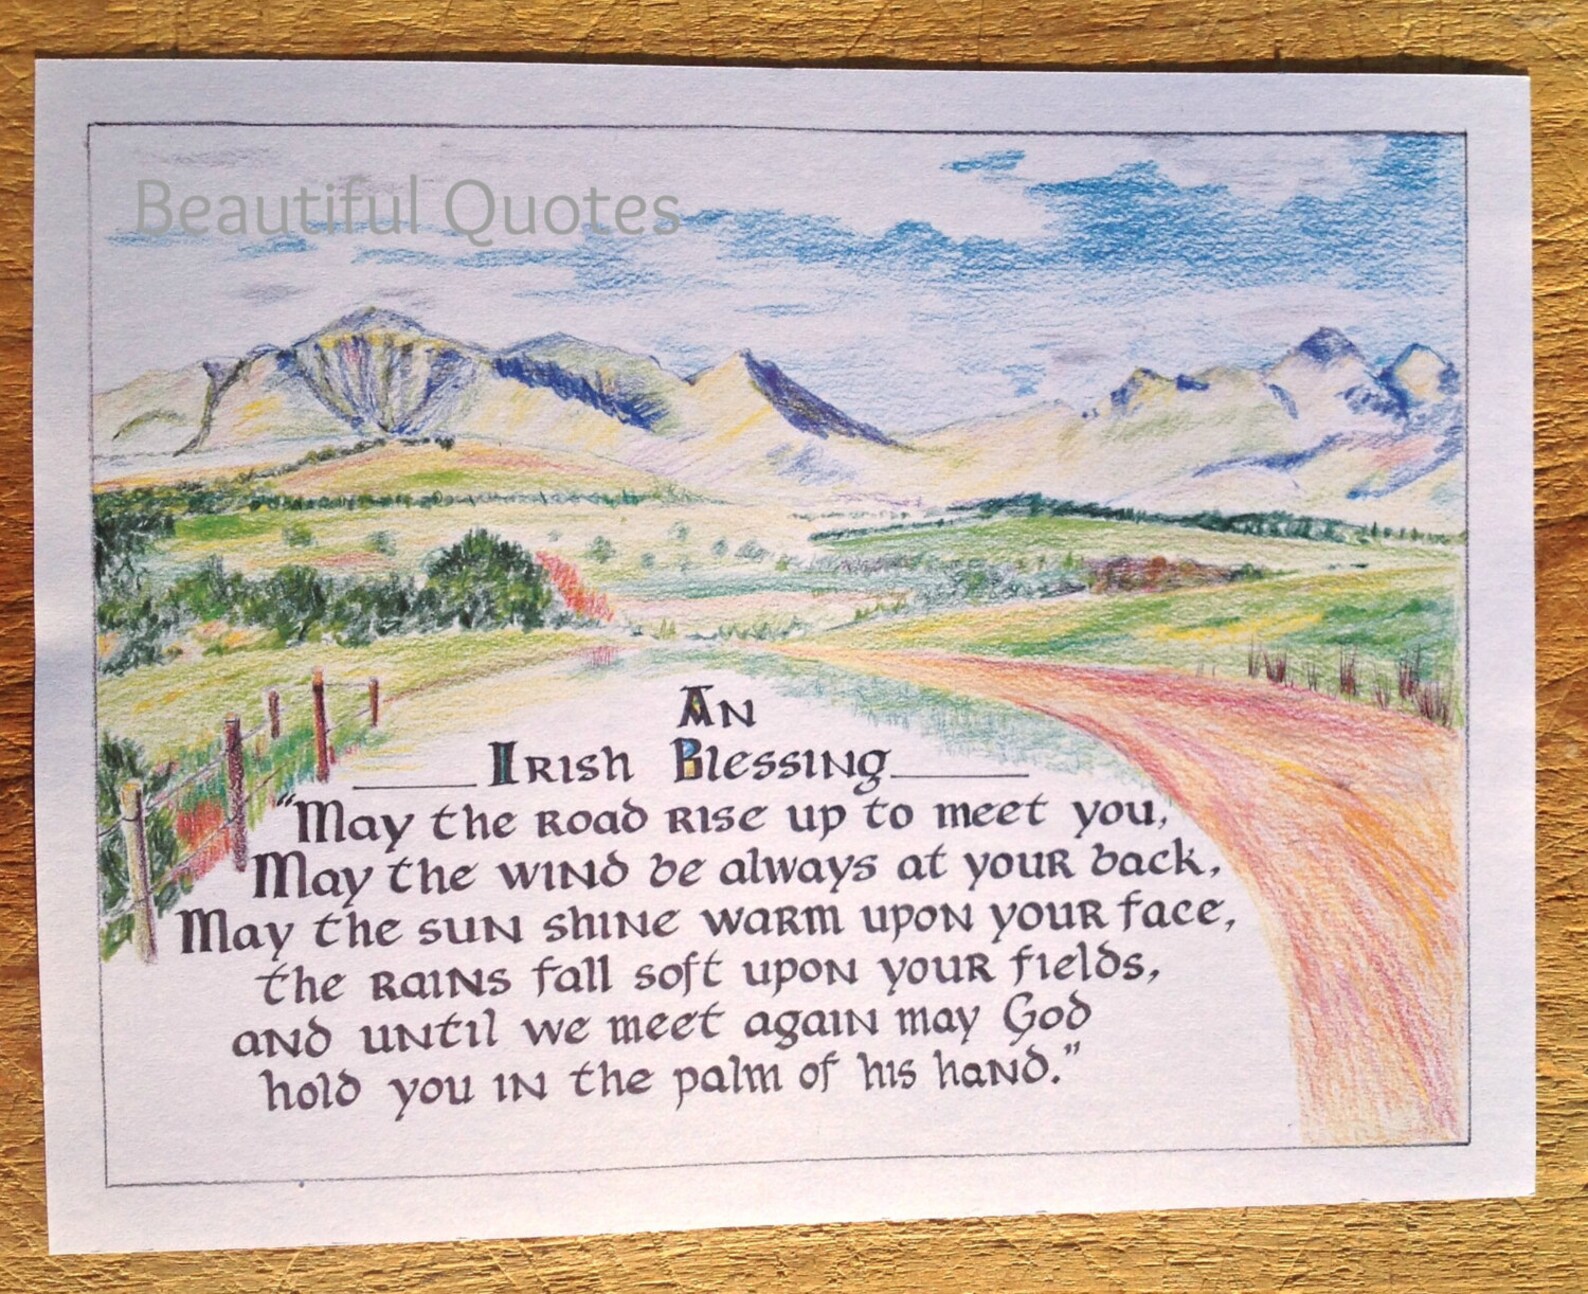 Beautiful Quotes
An
Irish Blessing
"May the road rise up to meet you,
May the wind be always at your back,
May the sun shine warm upon your face,
the rains fall soft upon your fields,
and until we meet again may God
hold you in the palm of his hand."